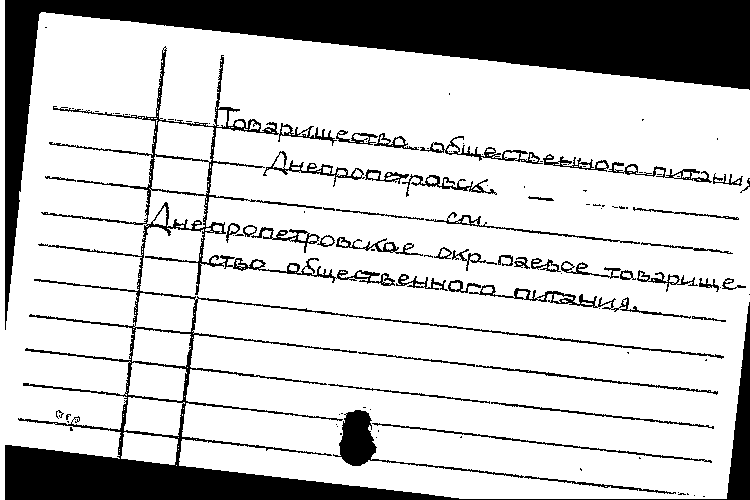 Товарищество общественного питания
Днепропетровск. —
см.
Днепропетровское окр паевое товарище-
ство общественного питания.